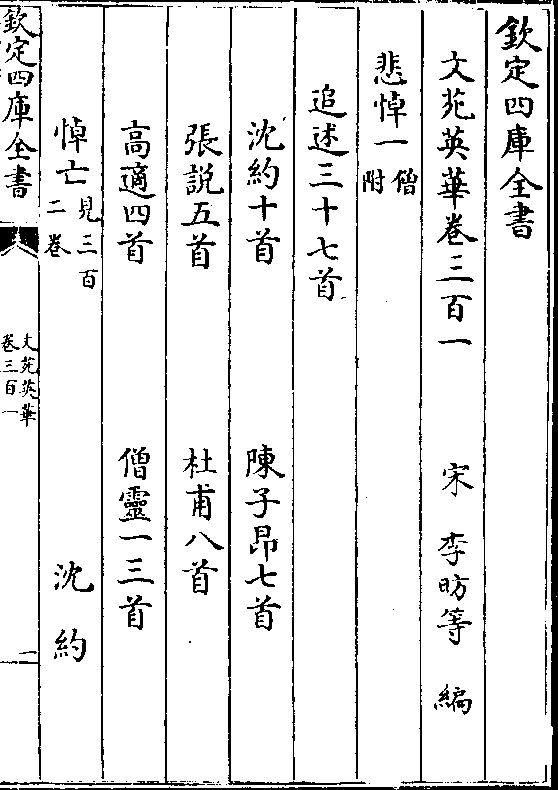 欽定四庫全書
文苑英華卷三百一　宋　李昉等　編
悲悼一僧附
追述三十七首
沈約十首　陳子昂七首
張説五首　杜甫八首
高適四首　僧靈一三首
悼亡見三百二卷　沈約
欽定四庫全書　文苑英華卷三百一　一